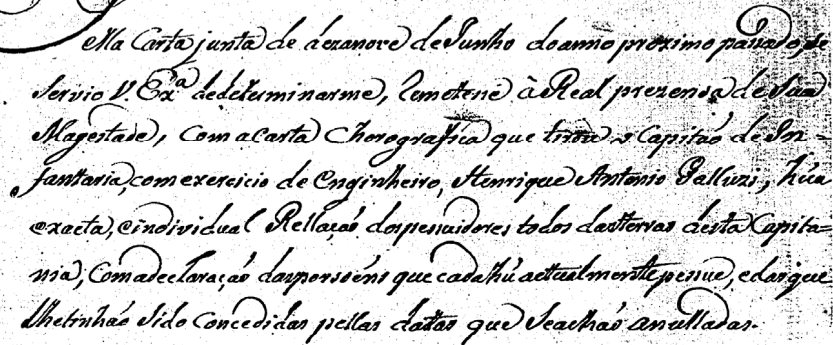 Na Carta junta de dezanove de Junho do anno proximo passado, se
servio V. Ex.ª de determinarme, remetese à Real prezensa de Sua
Magestade, com a carta Chorografica que tirou o Capitaõ de In-
fantaria, com exersicio de Enginheiro, Henrique Antonio Galluzi, hũa
exacta, e individual Rellaçaõ dos pessuidores todos das terras desta Capita=
nia, com a declaraçaõ das porsoẽns que cada hũ actualmente pessue, e das que
lhe tinhaõ sido concedidas pellas datas que se achaõ anulladas.